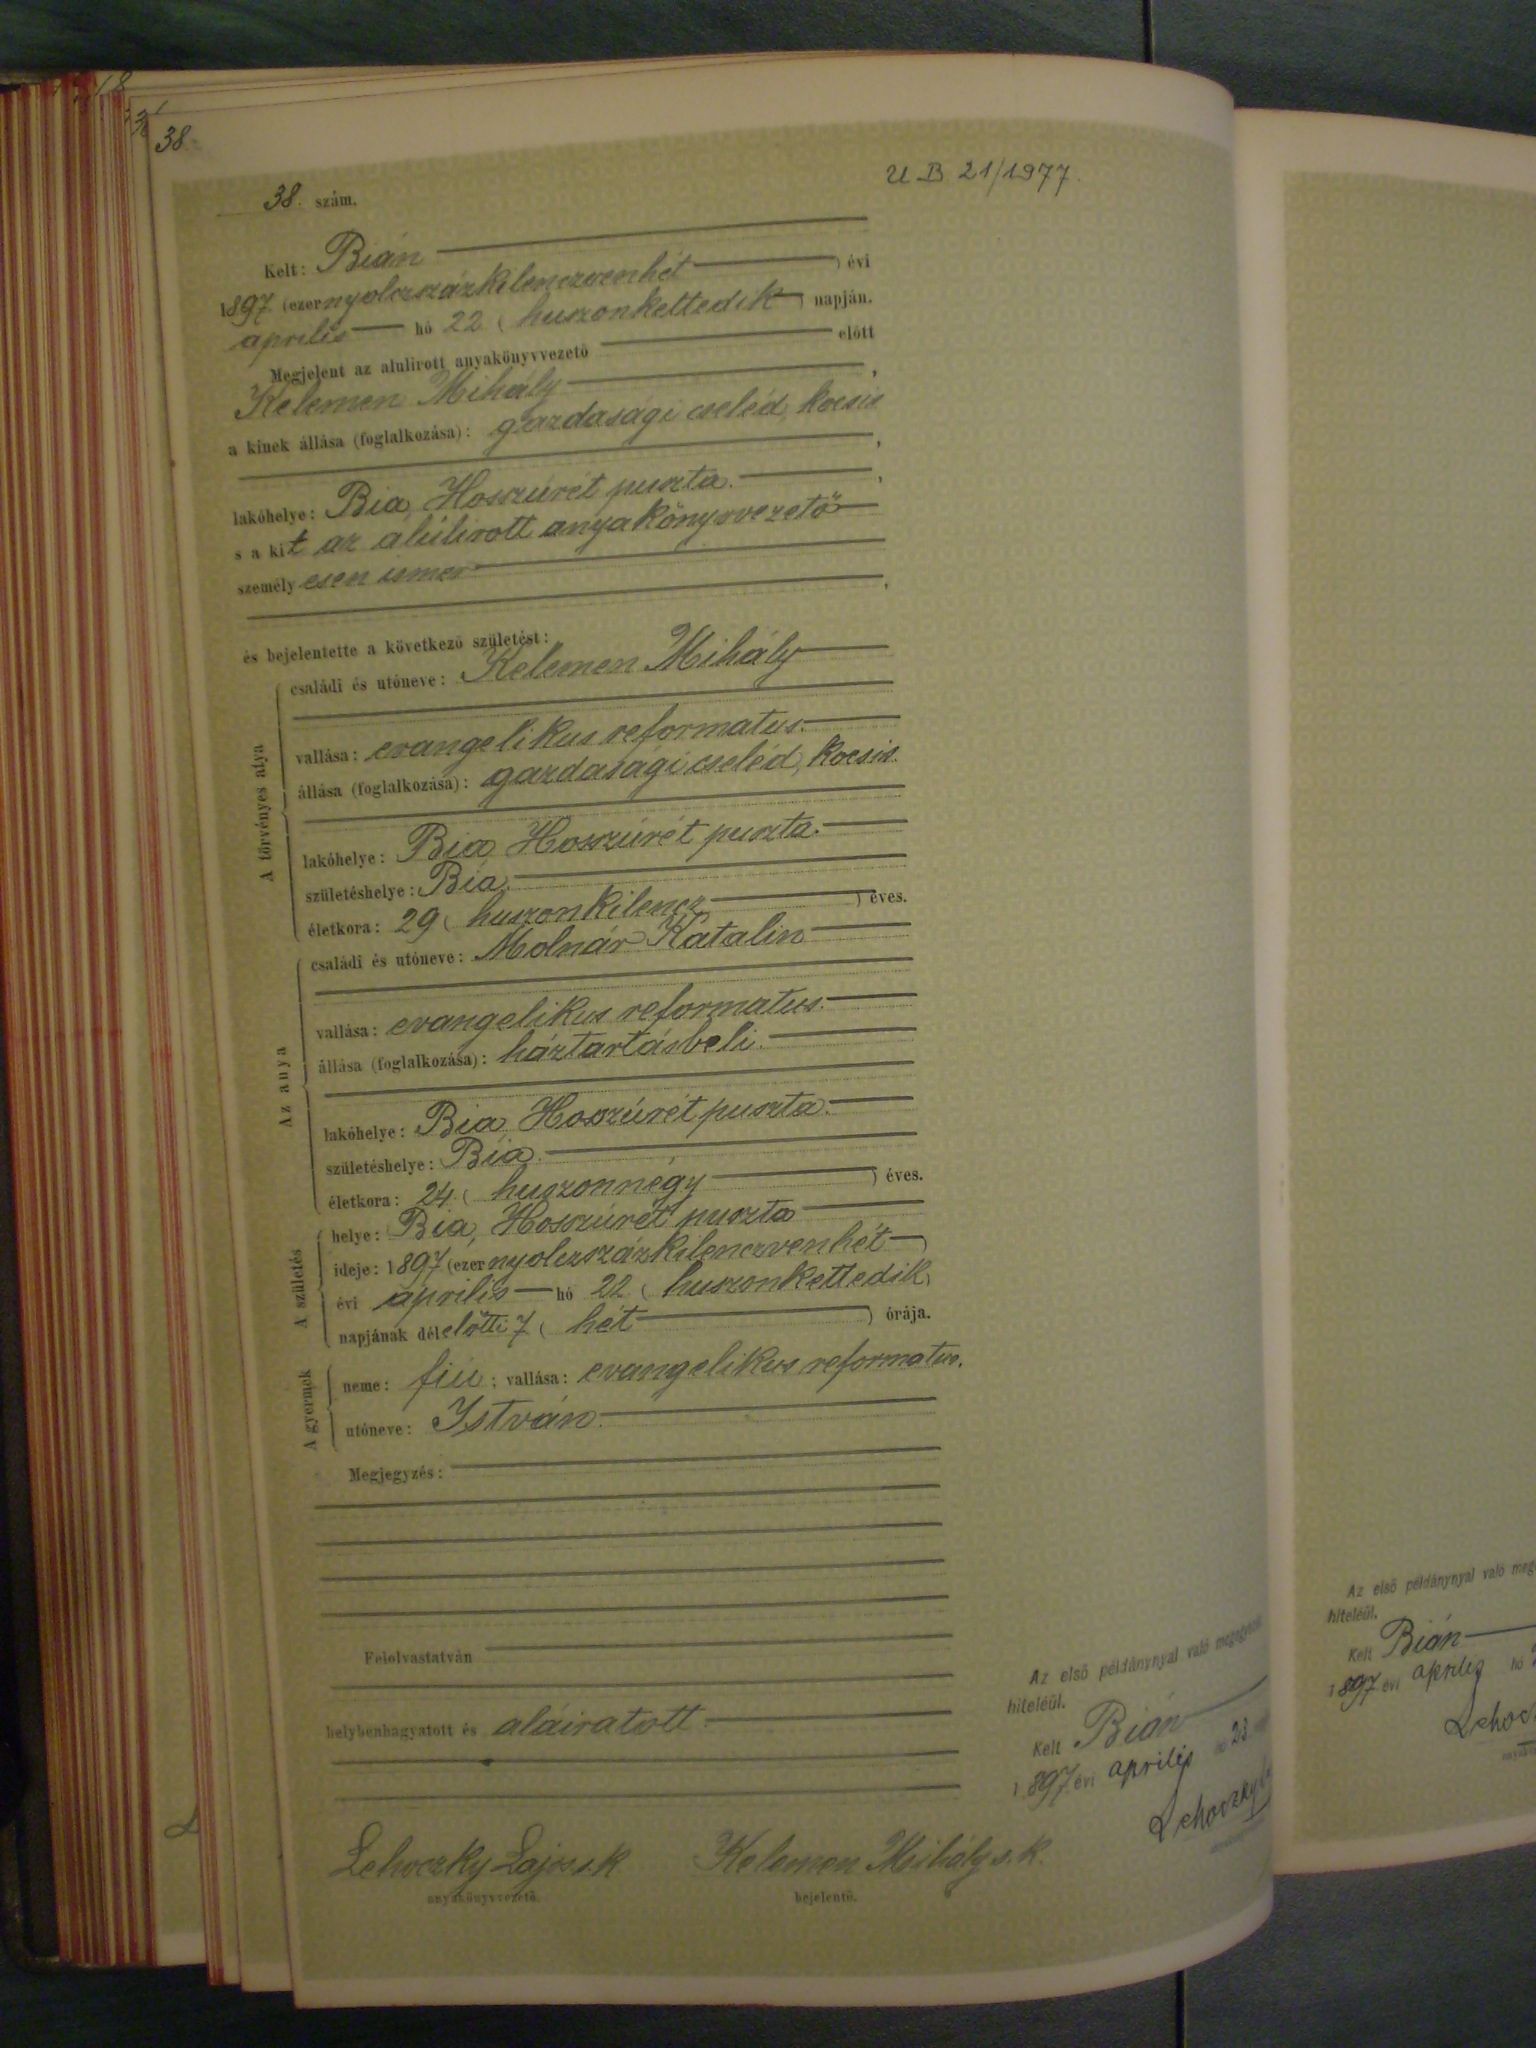 18
38
38
U B 21/1977.
38. szám.
Kelt: Bián
1897 (ezernyolczszázkilenczvenhét) évi
április hó 22 (huszonkettedik) napján.
Megjelent az alulirott anyakönyvvezető előtt
Kelemen Mihály,
a kinek állása (foglalkozása): gazdasági cseléd, kocsis
,
lakóhelye: Bia, Hosszúrét puszta.,
s a kit az alúlirott anyakönyvvezető
személyesen ismer
,
és bejelentette a következő születést:
A törvényes atya
családi és utóneve: Kelemen Mihály
vallása: evangelikus reformatus.
állása (foglalkozása): gazdasági cseléd, kocsis.
lakóhelye: Bia, Hosszúrét puszta.
születéshelye: Bia.
életkora: 29 (huszonkilencz) éves.
Az anya
családi és utóneve: Molnár Katalin
vallása: evangelikus reformatus.
állása (foglalkozása): háztartásbeli.
lakóhelye: Bia, Hosszúrét puszta.
születéshelye: Bia.
életkora: 24. (huszonnégy) éves.
A születés
helye: Bia, Hosszúrét puszta
ideje: 1897 (ezernyolczszázkilenczvenhét)
évi április hó 22 (huszonkettedik)
napjának délelőtti 7 (hét) órája.
A gyermek
neme: fiú; vallása: evangelikus reformatus.
utóneve: István.
Megjegyzés:
Felolvastatván
helybenhagyatott és aláiratott
Lehoczky Lajos s. k
anyakönyvvezető.
Kelemen Mihály s. k.
bejelentő.
Az első példánynyal való megegyezés
hiteléül.
Kelt Bián
1897 évi április hó 23
Lehoczky
Az első példánynyal való meg
hiteléül.
Kelt Bián
1897 évi április hó 2
Lehocz